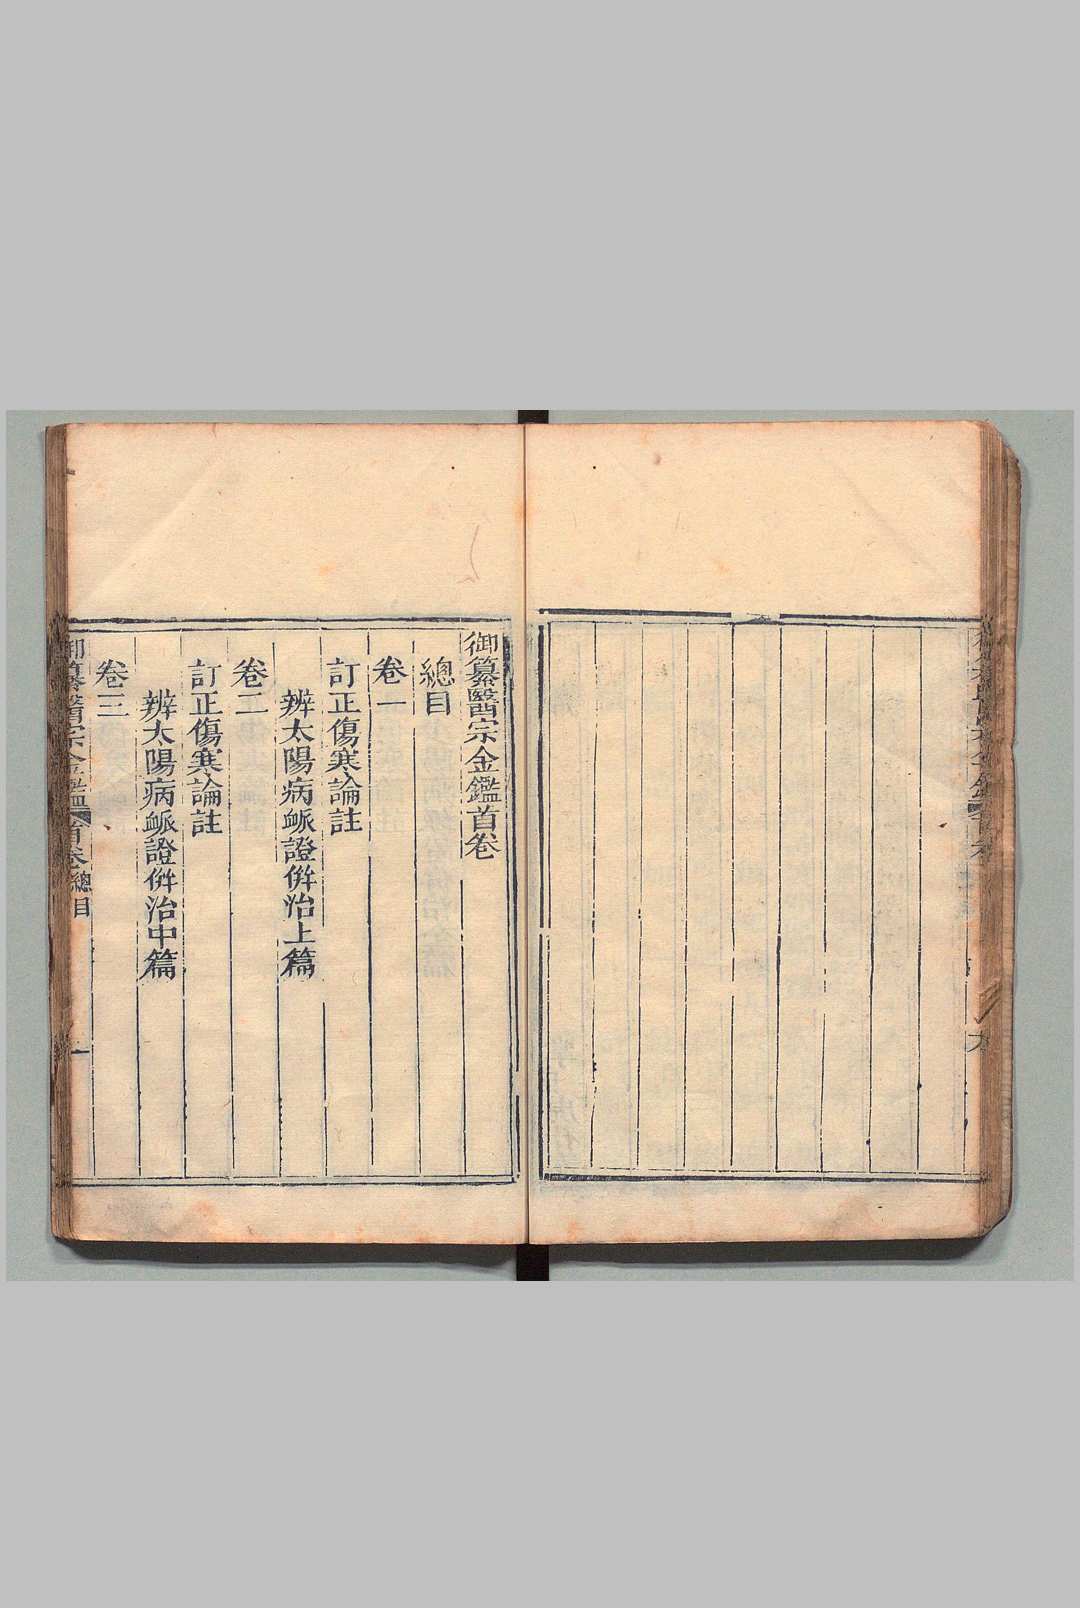 御纂醫宗金鑑首卷
總目
卷一
訂正傷寒論註
辨太陽病衇證併治上篇
卷二
訂正傷寒論註
辨太陽病衇證併治中篇
卷三
御纂醫宗金鑑 首卷 總目 一